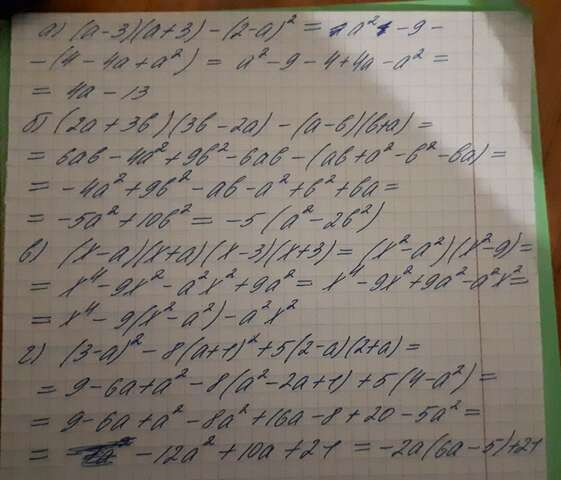 а) (a-3)(a+3) - (2-a)² = a² - 9 -
- (4 - 4a + a²) = a² - 9 - 4 + 4a - a² =
= 4a - 13
б) (2a + 3b)(3b - 2a) - (a - b)(b + a) =
= 6ab - 4a² + 9b² - 6ab - (ab + a² - b² - ba) =
= -4a² + 9b² - ab - a² + b² + ba =
= -5a² + 10b² = -5(a² - 2b²)
в) (x-a)(x+a)(x-3)(x+3) = (x² - a²)(x² - 9) =
= x⁴ - 9x² - a²x² + 9a² = x⁴ - 9x² + 9a² - a²x² =
= x⁴ - 9(x² - a²) - a²x²
г) (3-a)² - 8(a+1)² + 5(2-a)(2+a) =
= 9 - 6a + a² - 8(a² - 2a + 1) + 5(4 - a²) =
= 9 - 6a + a² - 8a² + 16a - 8 + 20 - 5a² =
= -12a² + 10a + 21 = -2a(6a - 5) + 21